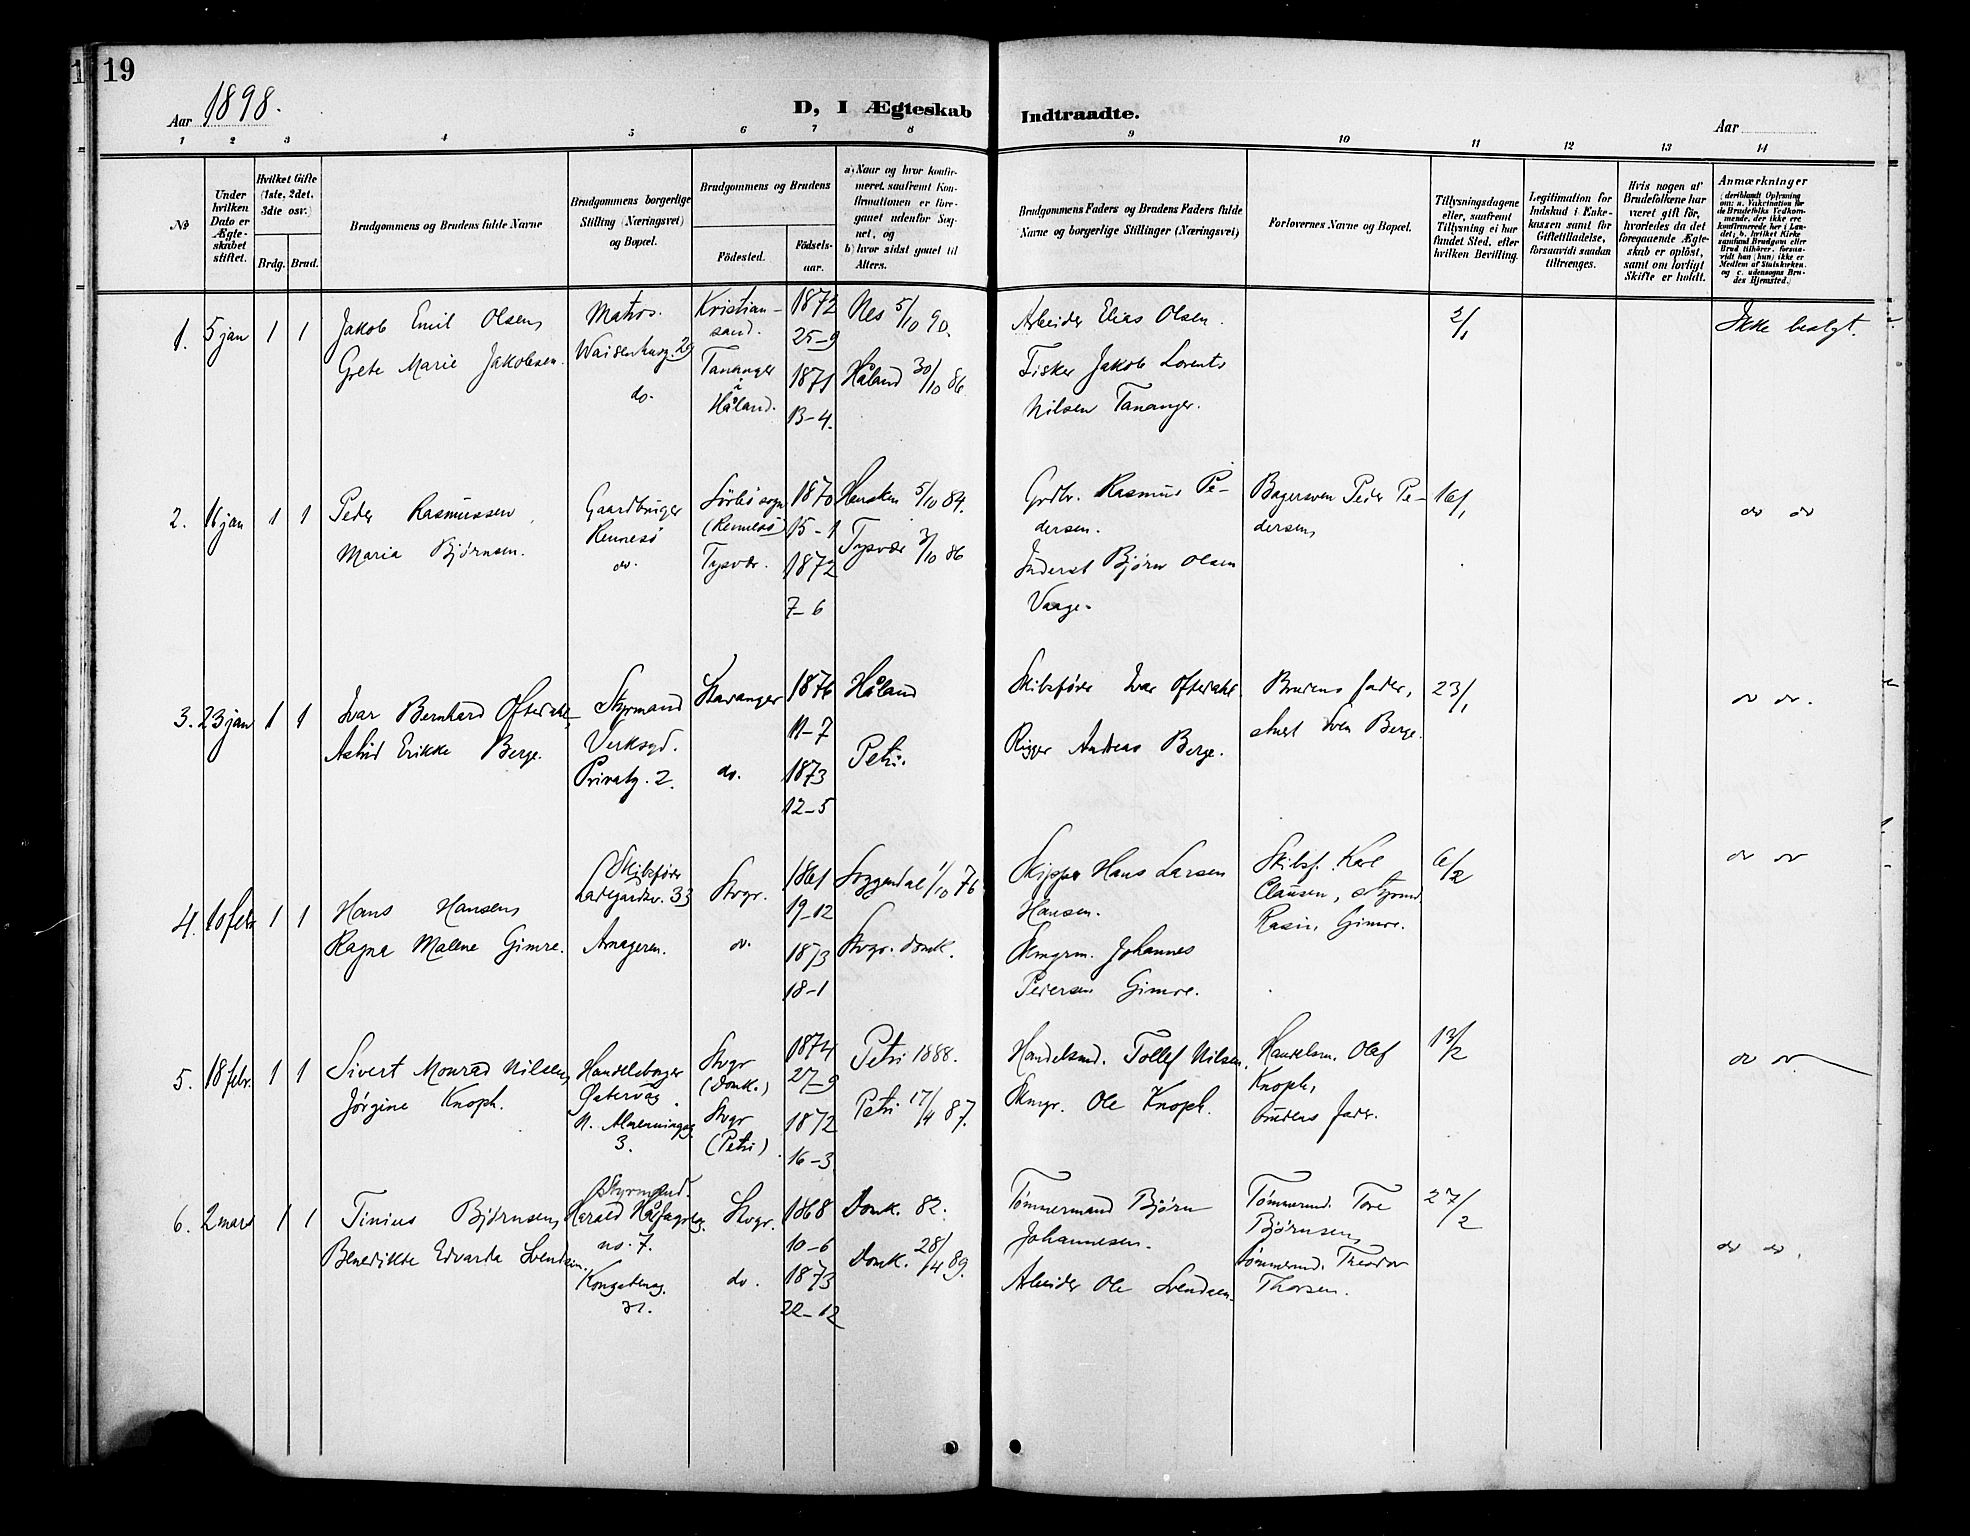 19
Aar 1898.
D, I Ægteskab Indtraadte.
Aar
1 2 3 4 5 6 7 8 9 10 11 12 13 14
No
Under hvilken Dato er Ægteskabet stiftet.
Hvilket Gifte (1ste, 2det, 3die osv.)
Brdg. Brud.
Brudgommens og Brudens fulde Navne
Brudgommens borgerlige Stilling (Næringsvei) og Bopæl.
Brudgommens og Brudens
Fødested.
Fødselsaar.
a) Naar og hvor konfirmeret, saafremt Konfirmationen er foregaaet udenfor Sognet, og
b) hvor sidst gaaet til Alters.
Brudgommens Faders og Brudens Faders fulde Navne og borgerlige Stillinger (Næringsvei)
Forlovernes Navne og Bopæl.
Tillysningsdagene eller, saafremt Tillysning ei har fundet Sted, efter hvilken Bevilling.
Legitimation for Indskud i Enkekassen samt for Giftetilladelse, forsaavidt saadan tiltrænges.
Hvis nogen af Brudefolkene har været gift før, hvorledes da det foregaaende Ægteskab er opløst, samt om lovligt Skifte er holdt.
Anmærkninger
1. 5 jan 1 1
Jakob Emil Olsen,
Grete Marie Jakobsen.
Matros.
Waisenhusg. 29
do.
Kristiansand.
Tananger i Håland.
1872
25-9
1871
13-4.
Nes 5/10 90.
Håland 30/10 86
Arbeider Elias Olsen.
Fisker Jakob Lorents
Nilsen Tananger.
2/1
Ikke besolgt.
2. 16 jan 1 1
Peder Rasmussen,
Maria Bjørnsen.
Gaardbruger
Rennesø
do.
Sørbø sogn
(Rennesø)
Tysvær.
1870
15-1
1872
7-6
5/10 84.
Tysvær 3/10 86
Grdbr. Rasmus Pedersen.
Inderst Bjørn Olsen
Vaage.
Bagersven Peder Pedersen,
16/1
do do
3. 23 jan 1 1
Ivar Bernhard Oftedahl,
Astrid Erikke Berge.
Styrmand
Verksgd.
Privatg. 2.
Stavanger
do.
1876
11-7
1873
12-5
Håland
Petri.
Skibsfører Ivar Oftedahl.
Rigger Andreas Berge.
Brudens fader,
Sven Berge.
23/1
do do.
4. 10 febr 1 1
Hans Hansen,
Ragna Malene Gimre.
Skibsfører
Ladegårdsv. 33
Arnageren.
Stvgr.
do.
1861
19-12
1873
18-1
Soggendal 1/10 76
Stvgr. domk.
Skipper Hans Larsen
Hansen.
Skmgrm. Johannes
Pedersen Gimre.
Skibsf. Karl
Clausen, Styrmd.
Rasm. Gimre.
6/2
do do
5. 18 febr. 1 1
Sivert Monrad Nilsen,
Jørgine Knoph.
Handelsborger
Østervåg.
N. Almenningsg.
3.
Stvgr
(Domk.)
Stvgr
(Petri)
1874
27-9
1872
16-3
Petri 1888.
Petri 17/4 87.
Handelsmd. Tollef Nilsen.
Skmgr. Ole Knoph.
Handelsm. Olaf
Knoph,
brudens fader.
13/2
do do
6. 2 mars 1 1
Tinius Bjørnsen,
Benedikte Edvarda Svendsen.
Styrmand.
Harald Hålfagresg.
no. 7.
Kongsteng.
31.
Stvgr.
do.
1868
10-6
1873
22-12
Domk. 82.
Domk. 28/4 89.
Tømmermand Bjørn
Johannesen.
Arbeider Ole Svendsen.
Tømmermd. Tore
Bjørnsen,
tømmermd. Theodor
Thorsen.
27/2
do do.